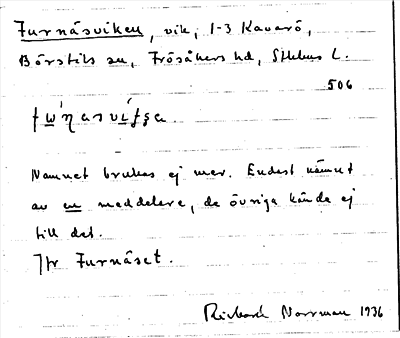 Furnäsviken, vik, 1-3 Kavarö,
Börstils sn, Frösåkers hd, Sthlms l.
506
Namnet brukas ej mer. Endast nämnt
av en meddelare, de övriga kände ej
till det.
Jfr Furnäset.
Richard Norrman 1936